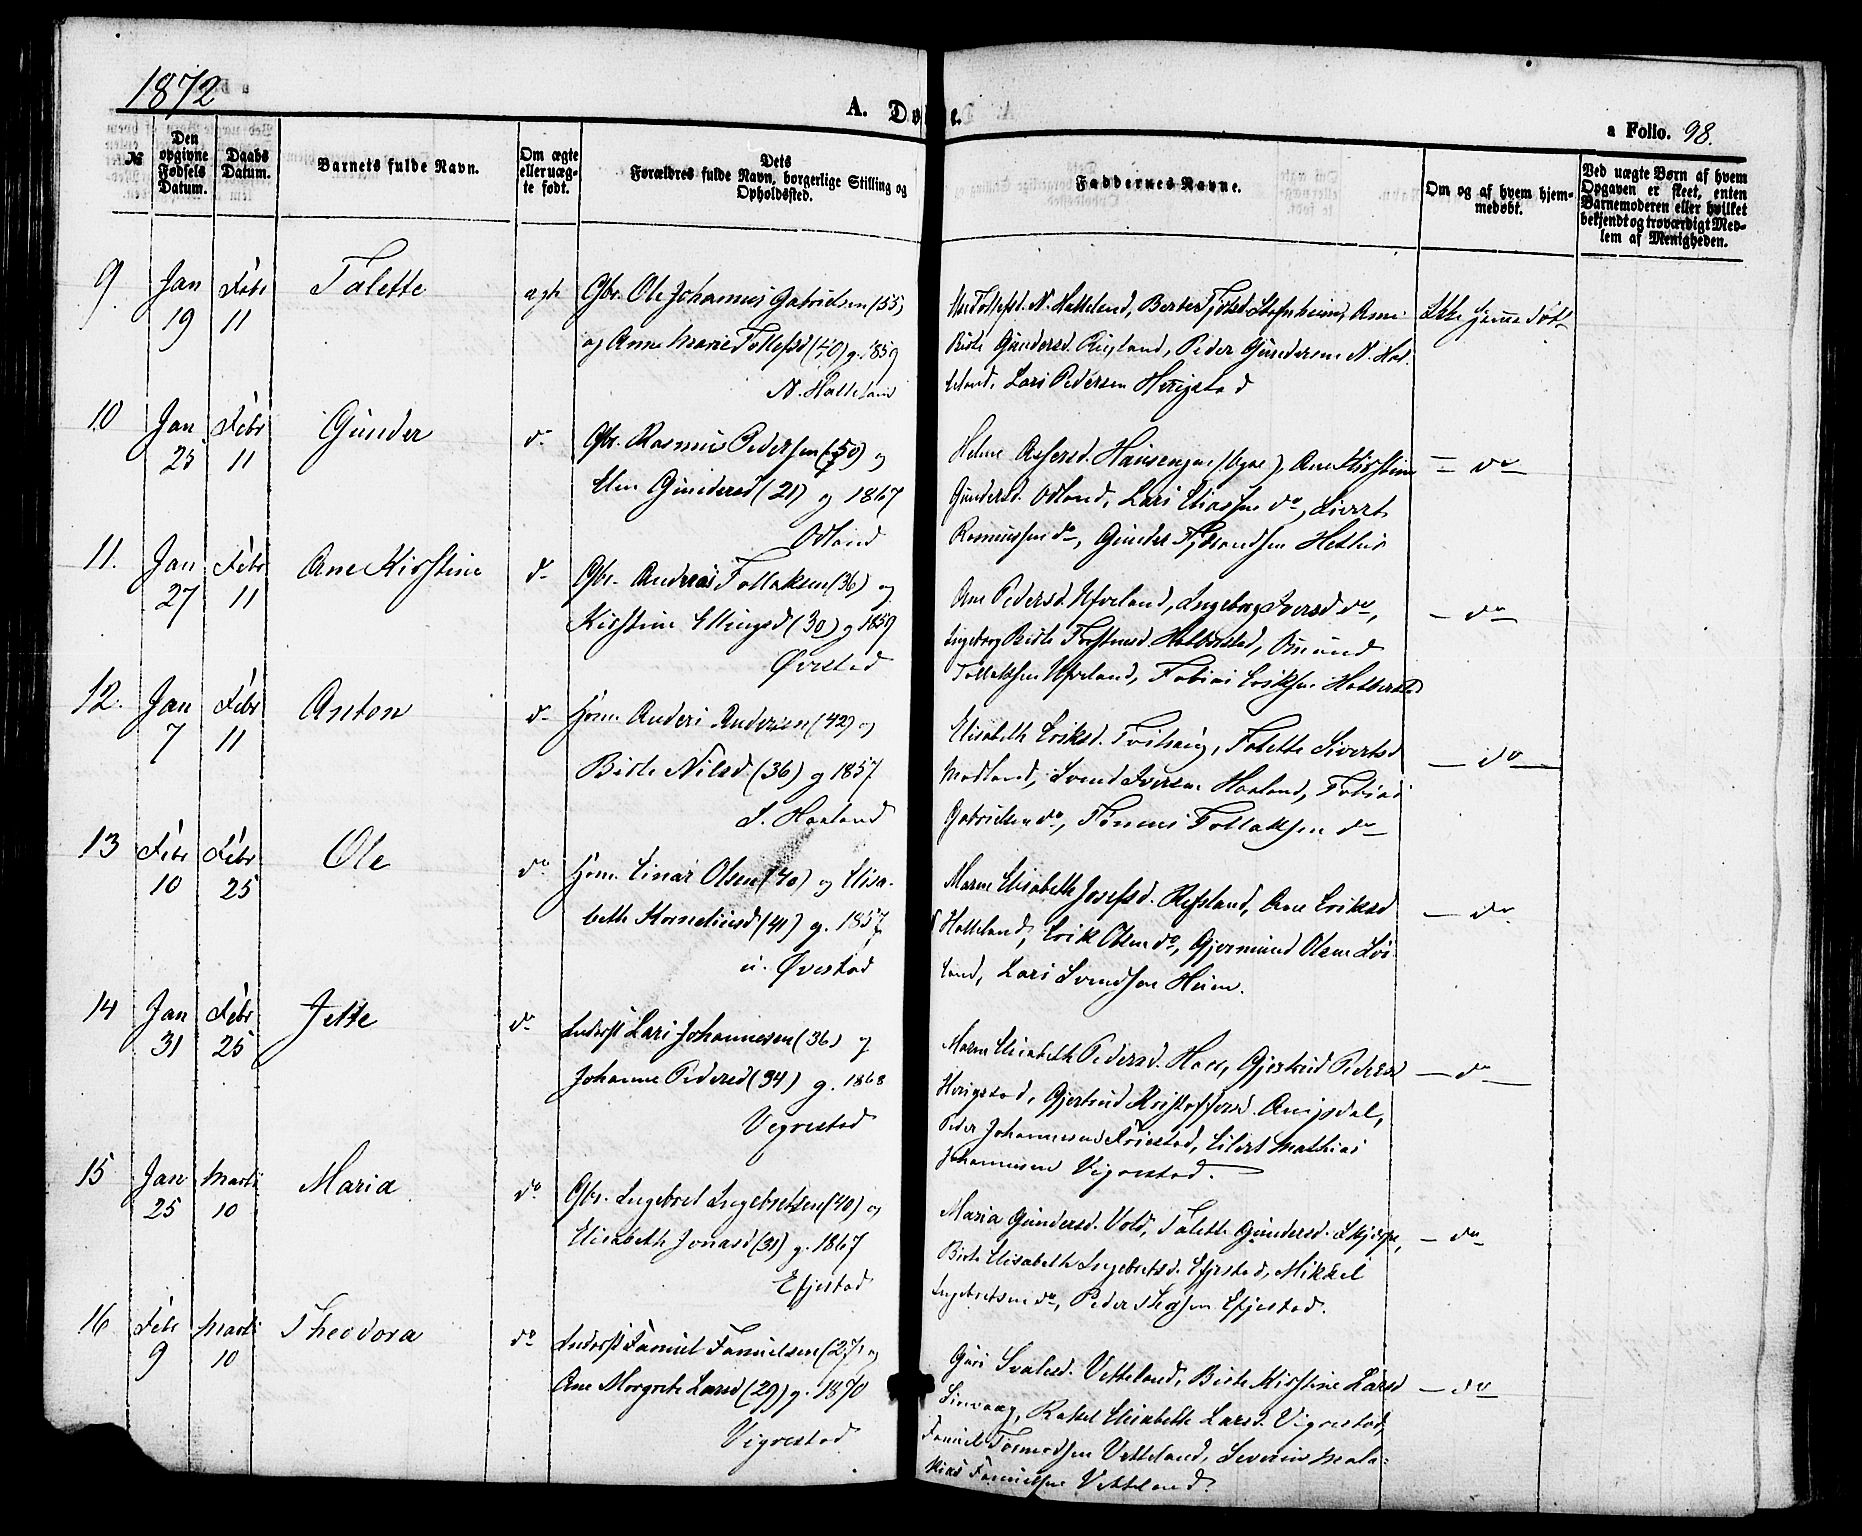 1872
A. Dø e.
a Folio. 98.
№
Den opgivne Fødsels Datum.
Daabs Datum.
Barnets fulde Navn.
Om ægte eller uægte født.
Dets Forældres fulde Navn, borgerlige Stilling og Opholdssted.
Faddernes Navne.
Om og af hvem hjemmedøbt.
Ved uægte Børn af hvem Opgaven er skeet, enten Barnemoderen eller hvilket bekjendt og troværdigt Medlem af Menigheden.
9. Jan 19 Febr 11 Talette ægte
Gbr. Ole Johannes Gabrielsen (55)
og Anne Marie Tollefsd (40) g. 1859
N. Hatteland
Tollefsd. N. Hatteland, Ane
Birte Gundersd. Peder Gundersen N. Hat-
teland, Lars Pedersen Herigstad
Ikke hjemmedøbt
10 Jan 25 Febr 11 Gunder do
Gbr. Rasmus Pedersen (50) og
Elen Gundersd (21) g 1867
Odland
Helene Ane Kirstine
Gundersd. Odland, Lars Eliassen do, Sivert
Rasmussen do, Gunder Hetland
— do —
11. Jan 27 Febr 11 Ane Kirstine do
Gbr. Andreas Tollaksen (36) og
Kirstine Ellingsd (30) g 1859
Øvrestad
Ane Pedersd. Ueland, Ingeborg Iversd do,
Ingeborg Birte Torstensd Asmund
Tollaksen Ueland, Tobias Eriksen
— do —
12. Jan 7 Febr 11 Anton do
Hsm. Anders Andersen (42) og
Birte Nilsd. (36) g 1857
S. Haaland
Elisabeth Eriksd. Talette Sivertsd
Madland, Svend Iversen Haaland, Tobias
Gabrielsen do, Tønnes Tollaksen do
— do —
13 Febr 10 Febr 25 Ole do
Hsm. Einar Olsen (40) og Elisa-
beth Korneliusd (41) g. 1857
u. Øvrestad
Maren Elisabeth Josefsd. Refsland, Ane Eriksd
Hatteland, Erik Olsen do, Gjermund Olsen
land, Lars Svendsen Heien.
— do —
14 Jan 31 Febr 25 Jette do
Inderst Lars Johannesen (36) og
Johanne Pedersd (34) g. 1868
Vigrestad
Maren Elisabeth Pedersd. Haar, Gjertrud Pedersd
Herigstad, Gjertrud Kristoffersd. Auglsdal,
Peder Johannesen Eilert Mathias
Johannesen Vigrestad.
— do —
15 Jan 25 Marti 10 Maria do
Gbr. Ingebret Ingebretsen (40) og
Elisabeth Jonasd (31) g. 1867
Efjestad
Maria Gundersd. Vold, Talette Gundersd. Skjerpe,
Birte Elisabeth Ingebretsd. Efjestad, Mikkel
Ingebretsen do, Peder Efjestad.
— do —
16 Febr 9 Marti 10 Theodora do
Inderst Samuel Samuelsen (27) og
Ane Margrete Larsd (29) g. 1870
Vigrestad
Guri Svalesd. Vetteland, Birte Kirstine Larsd
Sirevaag, Rakel Elisabeth Larsd. Vigrestad,
Samuel Tormodsen Vetteland, Severin Mala-
kias Samuelsen Vetteland.
— do —